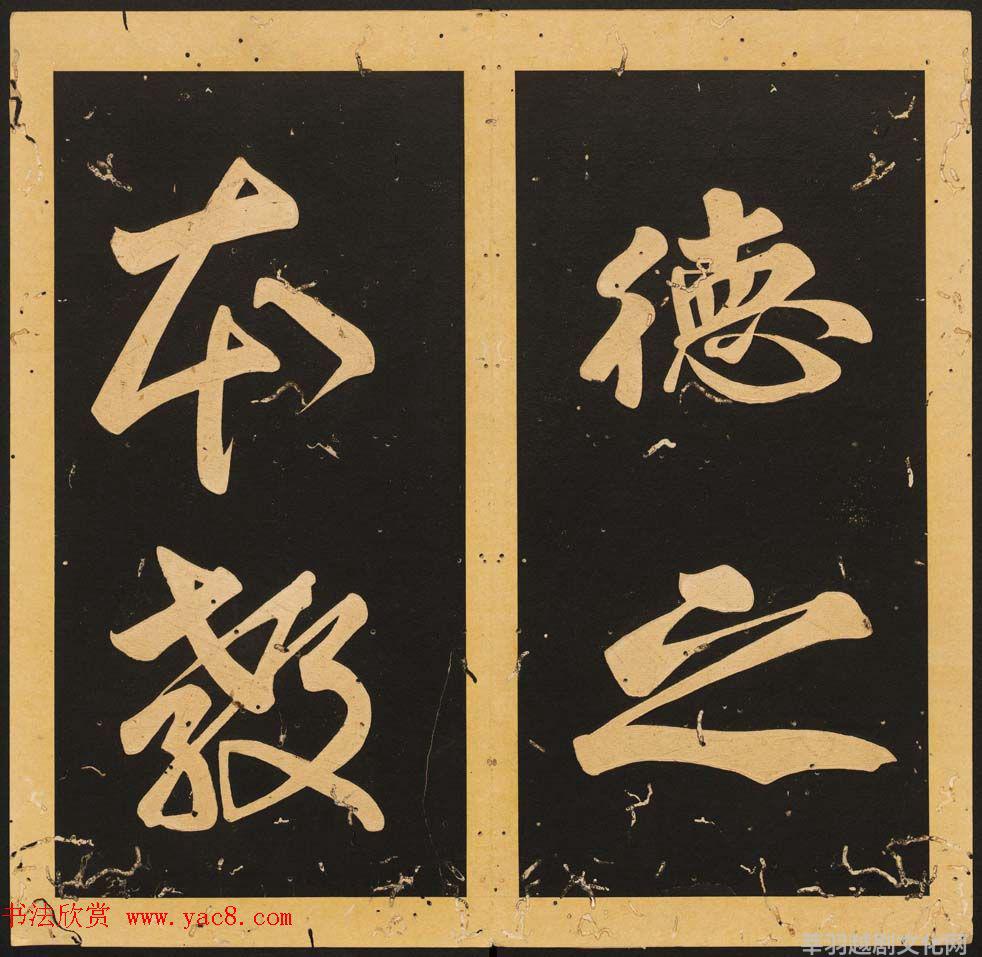 德之
本教
书法欣赏 www.yac8.com
華羽越剧文化网